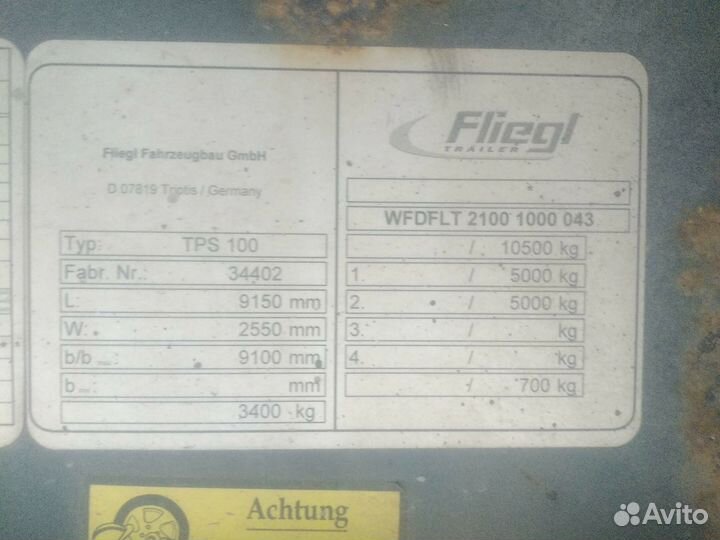 Fliegl Fahrzeugbau GmbH
D 07819 Triptis / Germany
Typ: TPS 100
Fabr. Nr.: 34402
L: 9150 mm
W: 2550 mm
b/b 9100 mm
b mm
3400 kg
Fliegl
TRAILER
WFDFLT 2100 1000 043
/ 10500 kg
1. / 5000 kg
2. / 5000 kg
3. / kg
4. / kg
/ 700 kg
Achtung
Avito